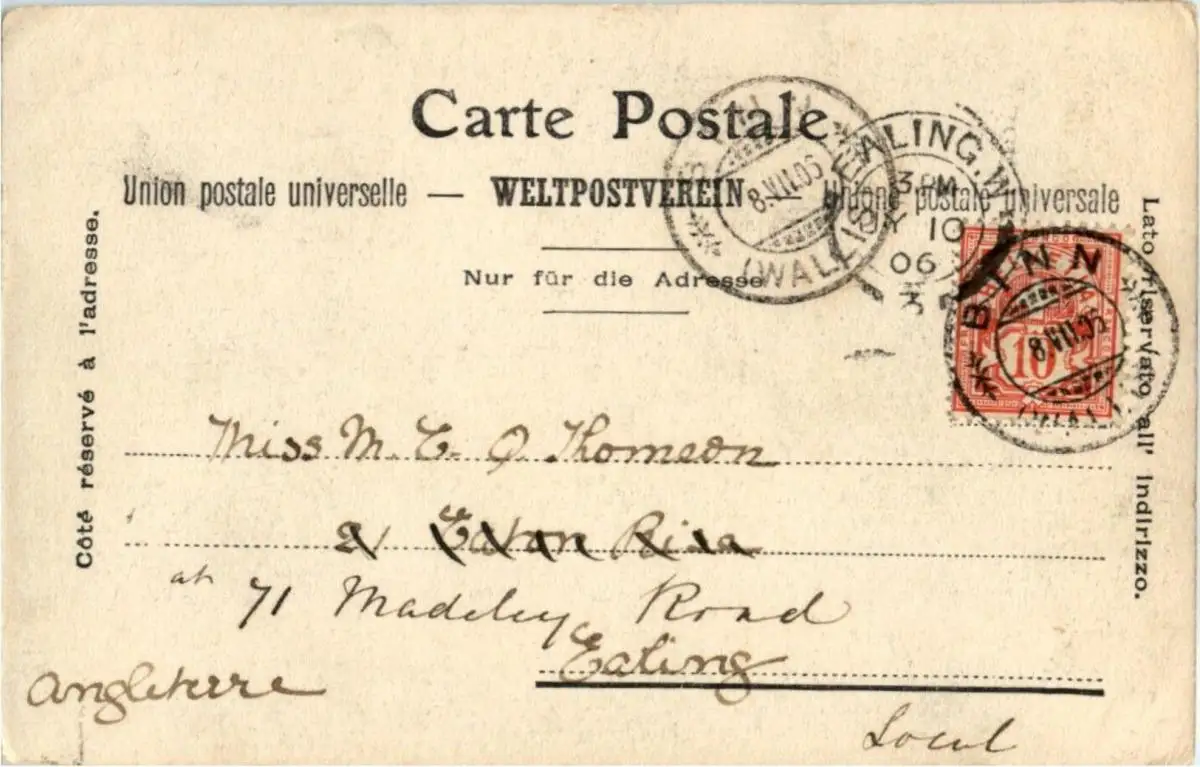 Carte Postale
Union postale universelle — WELTPOSTVEREIN — Unione postale universale
Nur für die Adresse
Côté réservé à l'adresse.
Lato riservato all' indirizzo.
BINN
8.VII.06
(WALLIS)
EALING.W
3 PM
10
06
3
BINN
8.VII.06
10
Miss M. E. O Thomson
21 Eaton Rise
at 71 Madeley Road
Ealing
Angleterre
Local